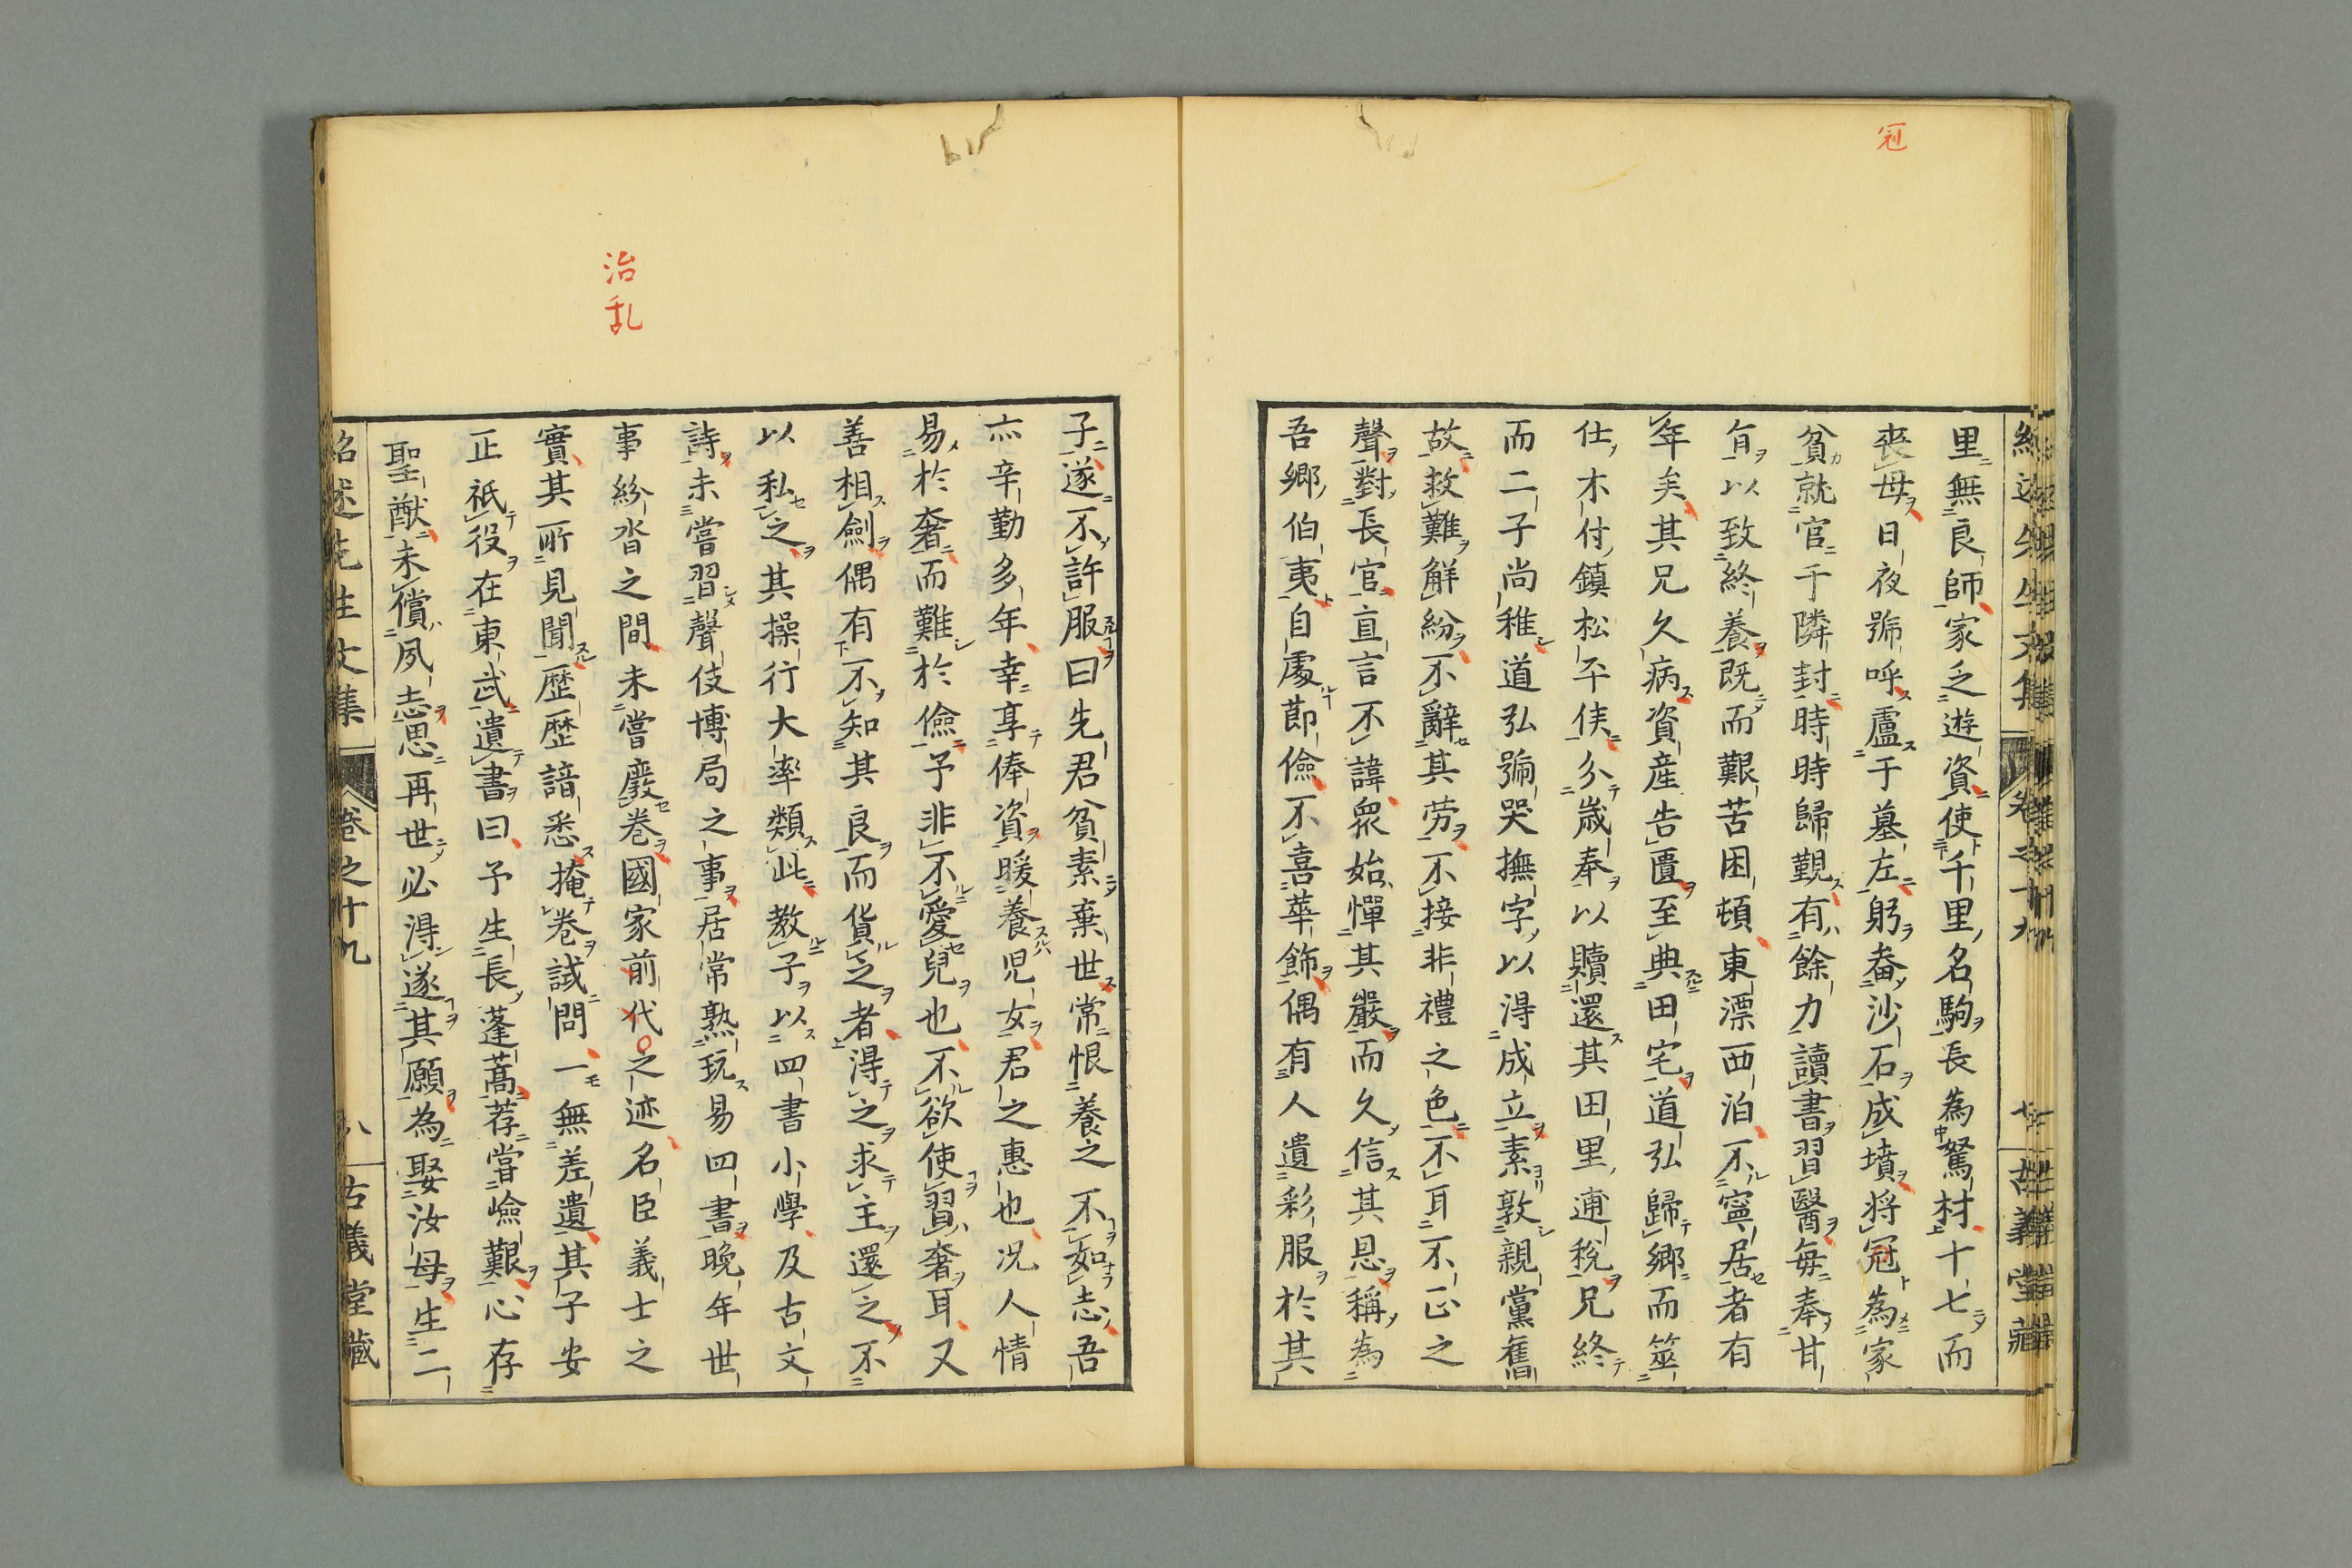 冠
里無良師家乏遊資使千里名駒長為駑材十七而
喪母日夜號呼廬于墓左躬畚沙石成墳將冠為家
貧就官于隣封時時歸覲有餘力讀書習醫每奉甘
旨以致終養既而艱苦困頓東漂西泊不寧居者有
年矣其兄久病資産告匱至典田宅道弘歸鄉而筮
仕木付鎮松平侯分歲奉以贖還其田里逋稅兄終
而二子尚稚道弘號哭撫字以得成立素敦親黨舊
故救難解紛不辭其劳不接非禮之色不耳不正之
聲對長官直言不諱眾始憚其嚴而久信其恩稱為
吾鄉伯夷自處節儉不喜華飾偶有人遺彩服於其
治乱
子遂不許服曰先君貧素棄世常恨養之不如志吾
亦辛勤多年幸享俸資暖養児女君之惠也况人情
易於奢而難於儉予非不愛兒也不欲使習奢耳又
善相劍偶有不知其良而貨之者得之求主還之不
以私之其操行大率類此教子以四書小學及古文
詩未嘗習聲伎博局之事居常熟玩易四書晚年世
事紛沓之間未嘗廢卷國家前代之迹名臣義士之
實其所見聞歷歷諳悉掩卷試問一無差遺其子安
正祇役在東武遺書曰予生長蓬蒿荐嘗嶮艱心存
聖猷未償夙志思再世必得遂其願為娶汝母生二
紹述先生文集 卷之十九 八 古義堂藏